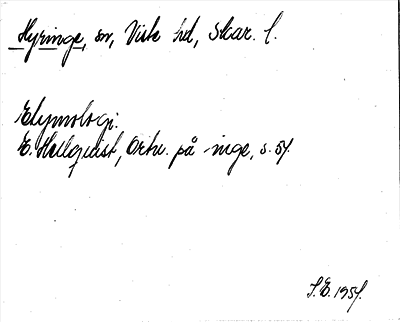 Hyringe, sn, Viste hd, Skar. l.
Etymologi.
E. Hellquist, Ortn. på -inge, s. 57.
S.E. 1957.